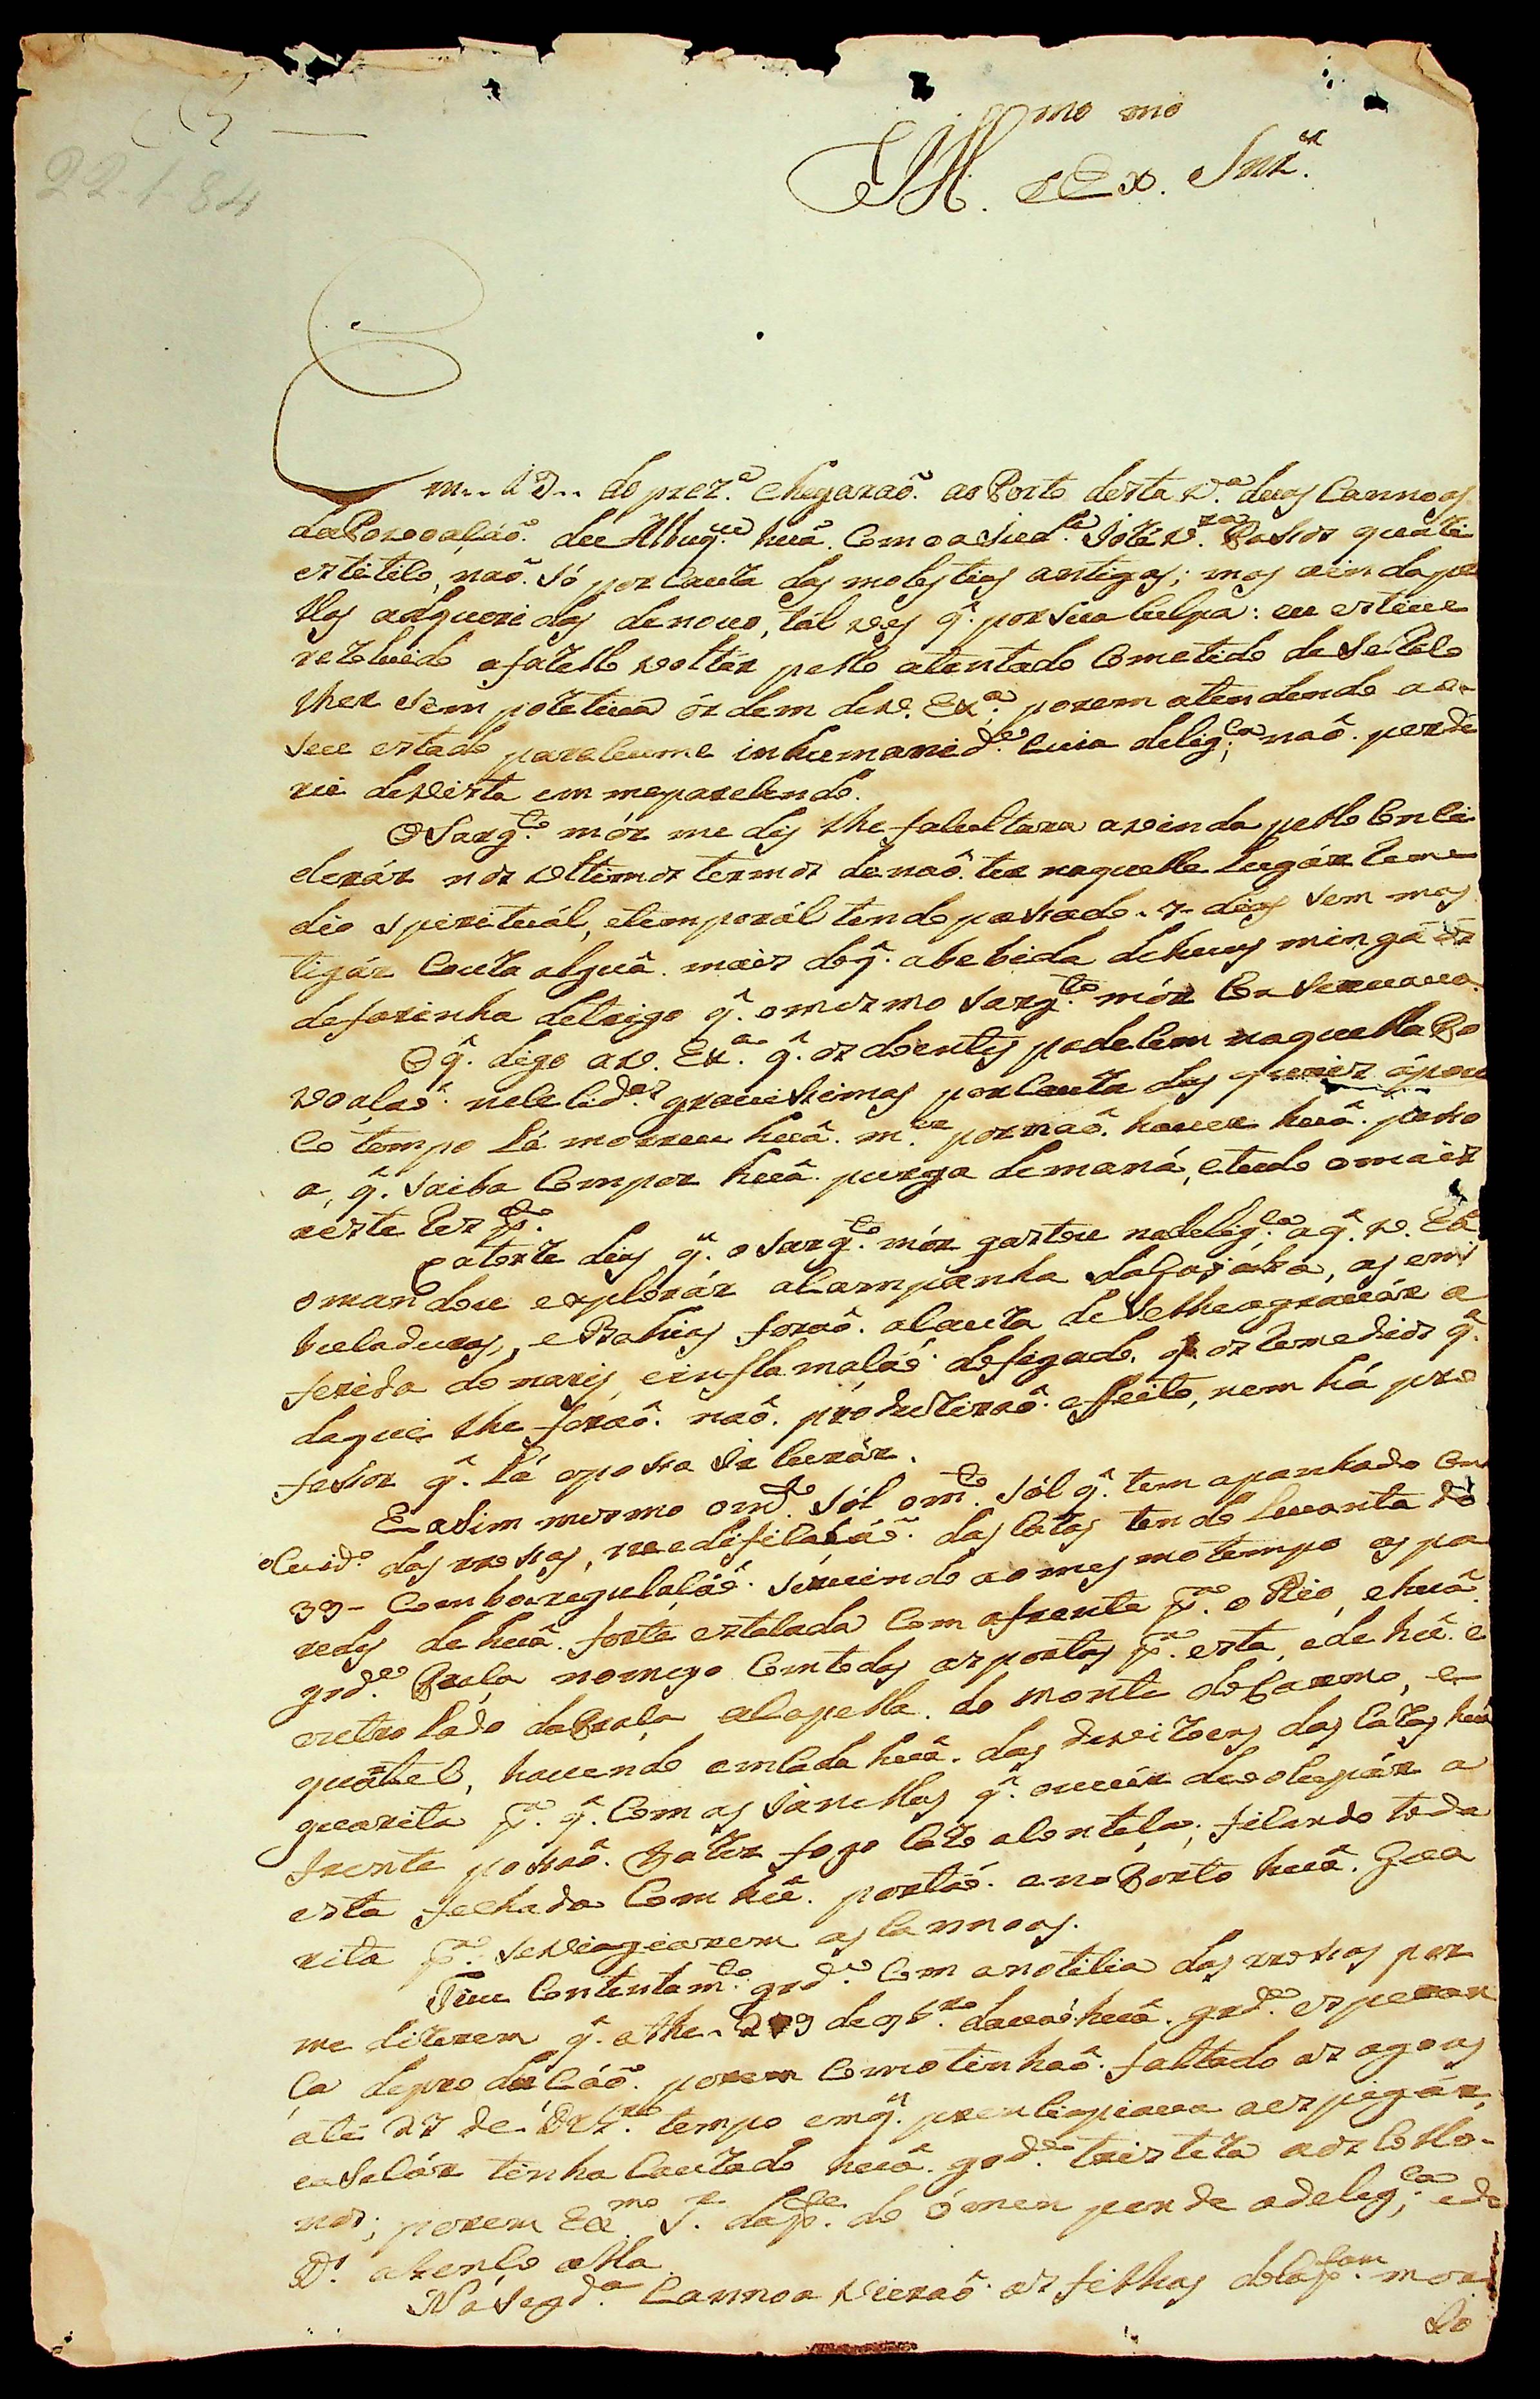 22-1 84
Ill.mo e Ex.mo Snr.
Em.. 19.. do prez.e chegaraõ. ao Porto desta V.a duas Cannoas
da Povoaçáõ. de Albuq.e huã. Com o Sold.
estitico, naõ. Só por Cauza das molestias antigas; mas ainda pe
llas adqueridas denovo, tál ves q̂. por Sua Culpa: eu estive
rezoluido afazello voltar pello atentado Cometido de Se reco
lher Sem pozetiva órdem de V. Ex.a; porem atendendo ao
Seu estado pareceume inhumanid.e Cuia delig.ca naõ. perde
rei devista em meparecendo.
O Sarg.to mór me dis lhe facultara avinda pello Conci
derár nos Ultimos termos de naõ. ter naquelle Lugár reme
dio Spirituál, etemporál tendo passado. 7. dias Sem mas
tigár Couza alguã. mais doq̂. abebida dehuns mingáos
defarinha detrigo q̂. omesmo Sarg.to mór Conservava.
O q̂. digo a V. Ex.a q̂. os doentes padecem naquella Po
voaçaõ. nececid.es gravissimas por Cauza das quais ápou
Co tempo Lá morreu huã. m.er pornaõ. haver huã. pesso
a, q̂. Saiba Compor huã. purga demaná, etudo omais
aeste resp.to
Catorze dias q̂. o Sarg.to mór gastou nadelig.ca aq̂. V. Ex.a
omandou explorár aCampanha, as em
buladuras, e Bahias foraõ. aCauza deSelheagravár a
ferida do naris, einflamaçáõ. dofigado. os remedios q̂.
daqui lhe foraõ. naõ. produziraõ. effeito, nem há pro
fessor q̂. Lá opossa Ir Curár.
E asim mesmo om.to Sól om.to Sól q̂. tem apanhado Com
oCuid.o das rossas, reedificaçáõ. das Cazas tendo Levantado
33- Com boa regulaçáõ. Servindo aomesmotempo as pa
redes de huã. forte estacada Com afrente p.a o Rio, ehuã
grd.e Praça nomeyo Comtodas as portas p.a esta, ede hũ. e
outro Lado daPraça aCapella. do Monte doCarmo, e
quartel, havendo emCada huã. das devizoens das Cazas huã
guarita p.a q̂. Com as Janellas q̂. ouvir de ocupár a
frente possaõ. fazer fogo Cazo aConteça; ficando toda
esta fechada Com hũ. portáõ. e no Porto huã. Gua
rita p.a Sevegiarem as Cannoas.
Tive Contentam.to grd.e Com anoticia das rossas por
me dizerem q̂. athe. 29 de 9br.o davaõ huã. grd.e esperan
ça deproduçáõ. porem Comotinhaõ. faltado as agoas
até 27 de Dezbr.o tempo emq̂. prencipiava aespigár,
easecár tinha Cauzado huã. grd.e tristeza aos Collo-
nos; porem Ex.mo S.r da p.te do ómen pende adelig.ca, edo
D.s abençoalla
Na Segd.a Cannoa Vieraõ. os filhos do Cap.tam mor
do